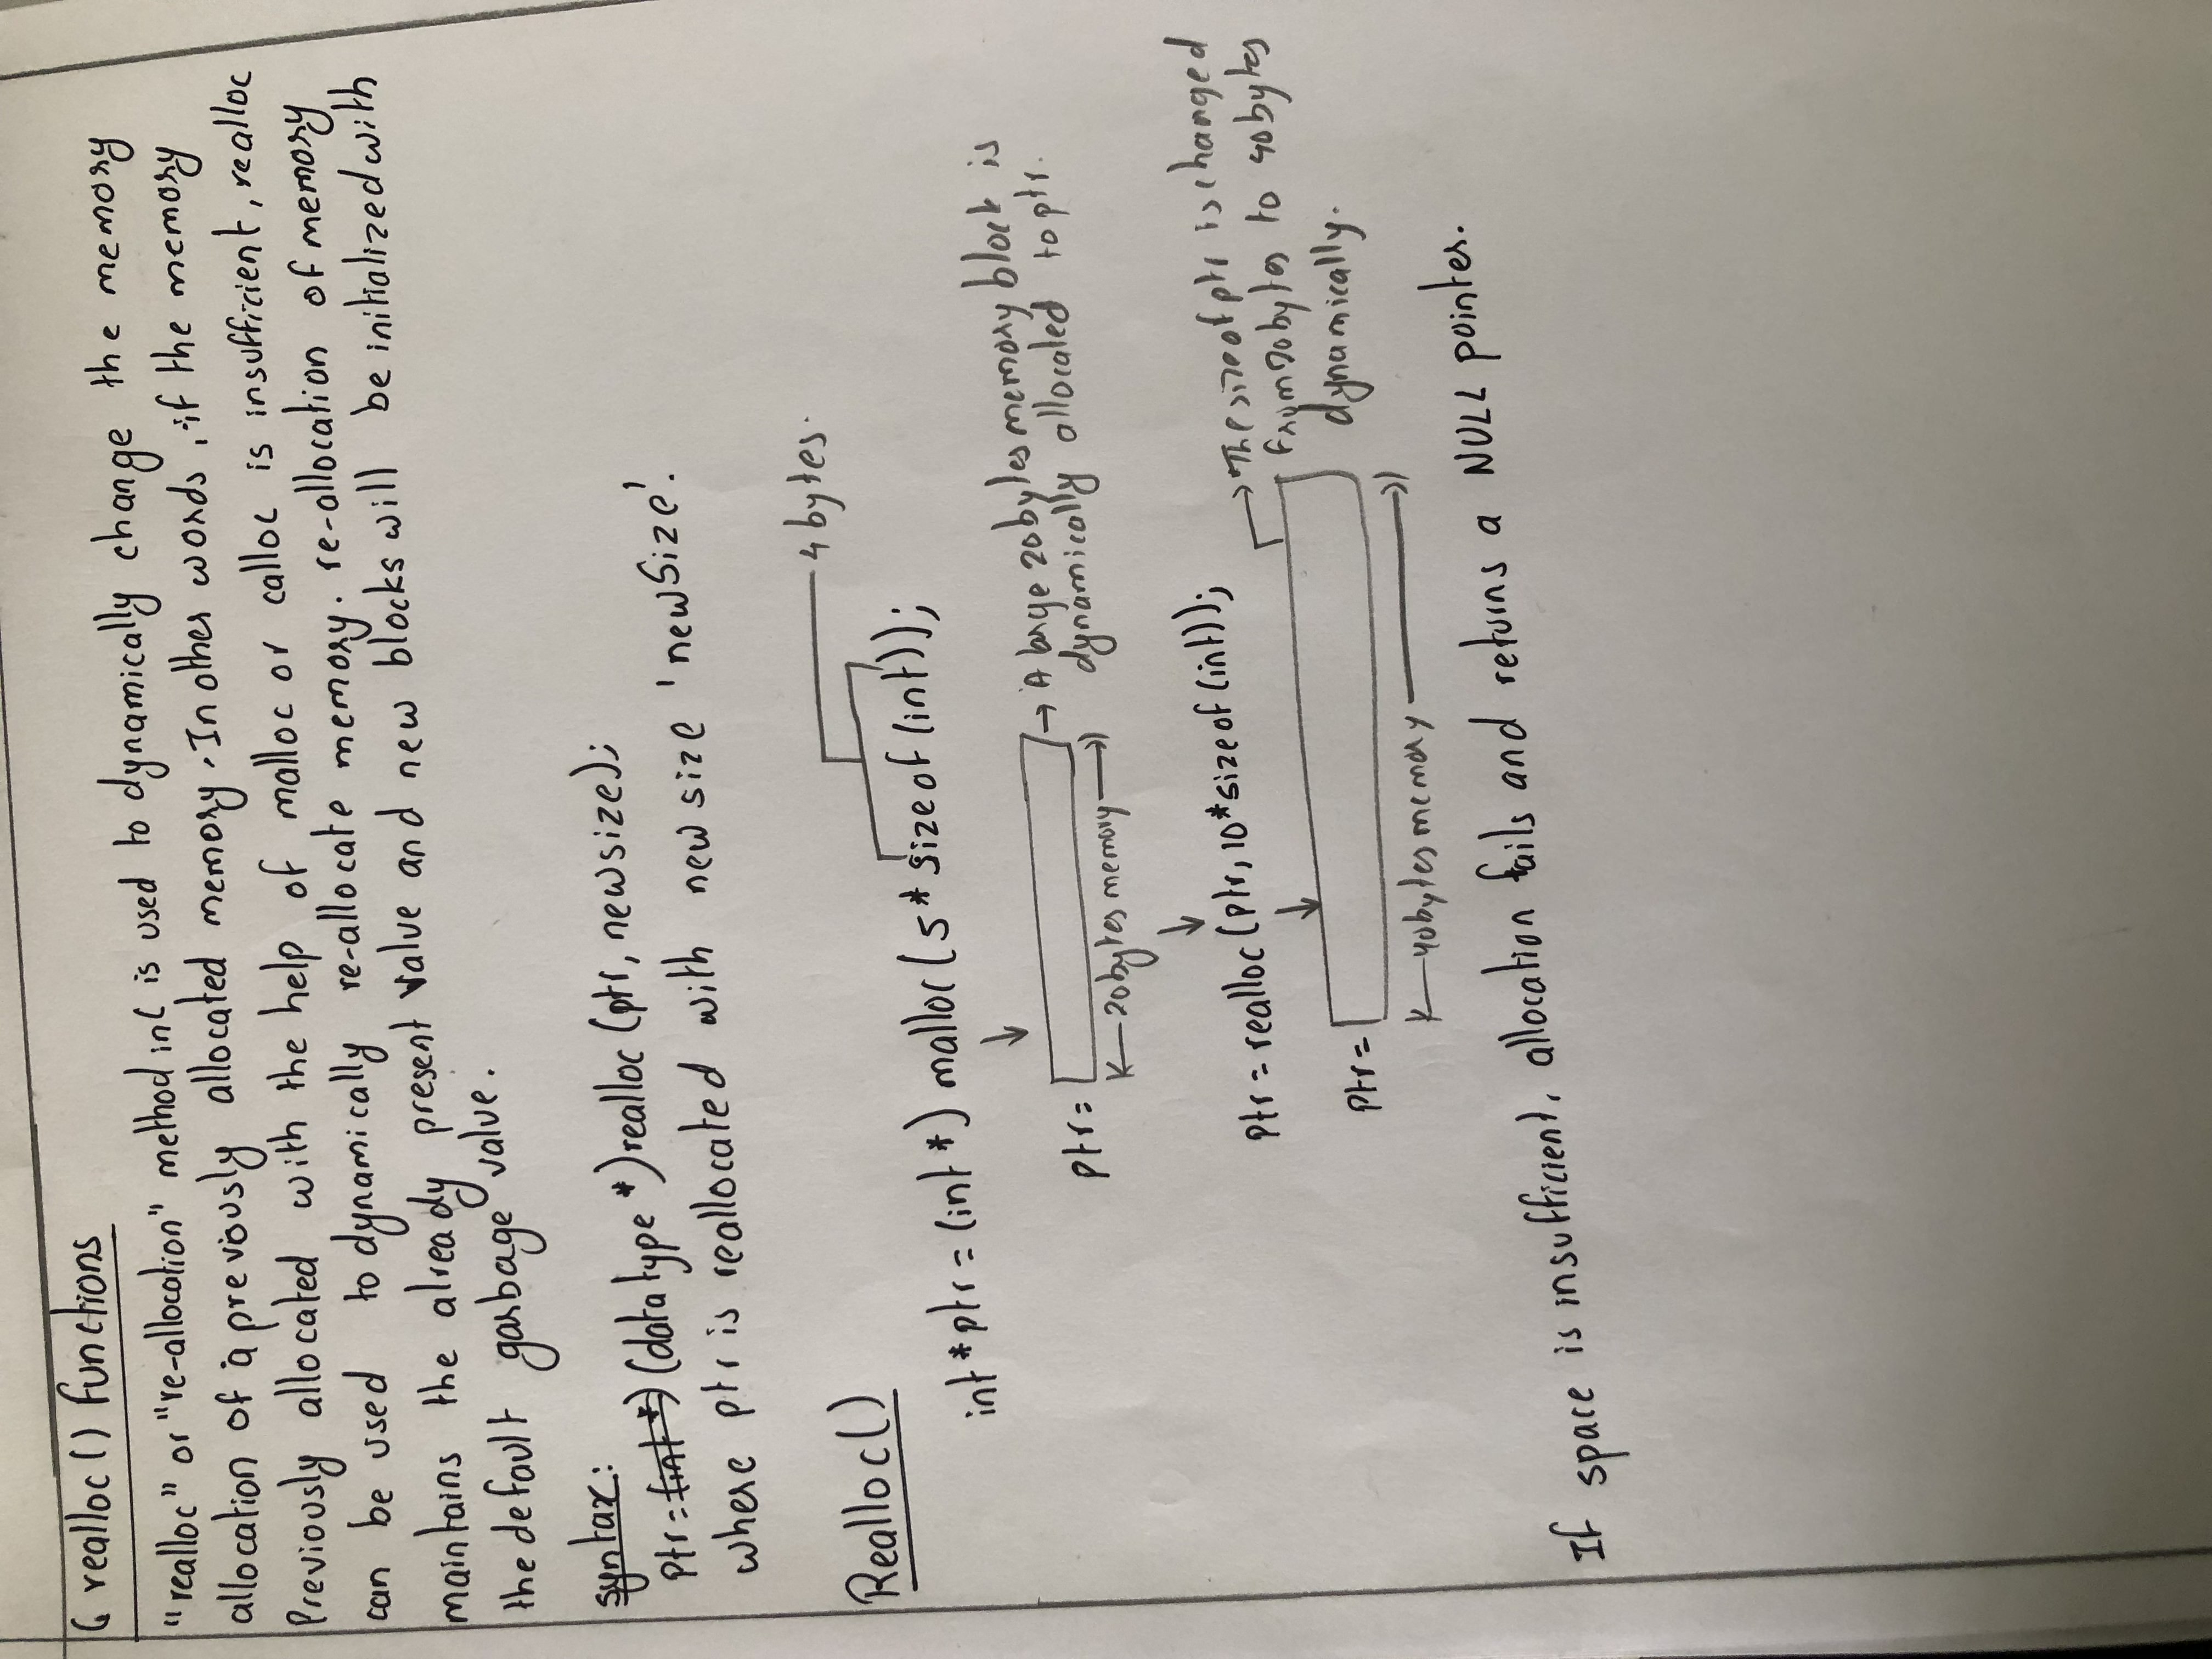 6 realloc() functions
"realloc" or "re-allocation" method in C is used to dynamically change the memory
allocation of a previously allocated memory. In other words, if the memory
Previously allocated with the help of malloc or calloc is insufficient, realloc
can be used to dynamically re-allocate memory. re-allocation of memory
maintains the already present value and new blocks will be initialized with
the default garbage value.
syntax:
Ptr = (int *) (data type *) realloc (ptr, newsize);
where ptr is reallocated with new size 'newSize'.
Realloc()
4 bytes.
int *ptr = (int *) malloc ( 5 * size of (int));
ptr =
→ A large 20 bytes memory block is
dynamically allocated to ptr.
20 bytes memory
Ptr = realloc (Ptr, 10 * size of (int));
→ The size of ptr is changed
from 20 bytes to 40 bytes
dynamically.
Ptr =
40 bytes memory
If space is insufficient, allocation fails and returns a NULL pointer.